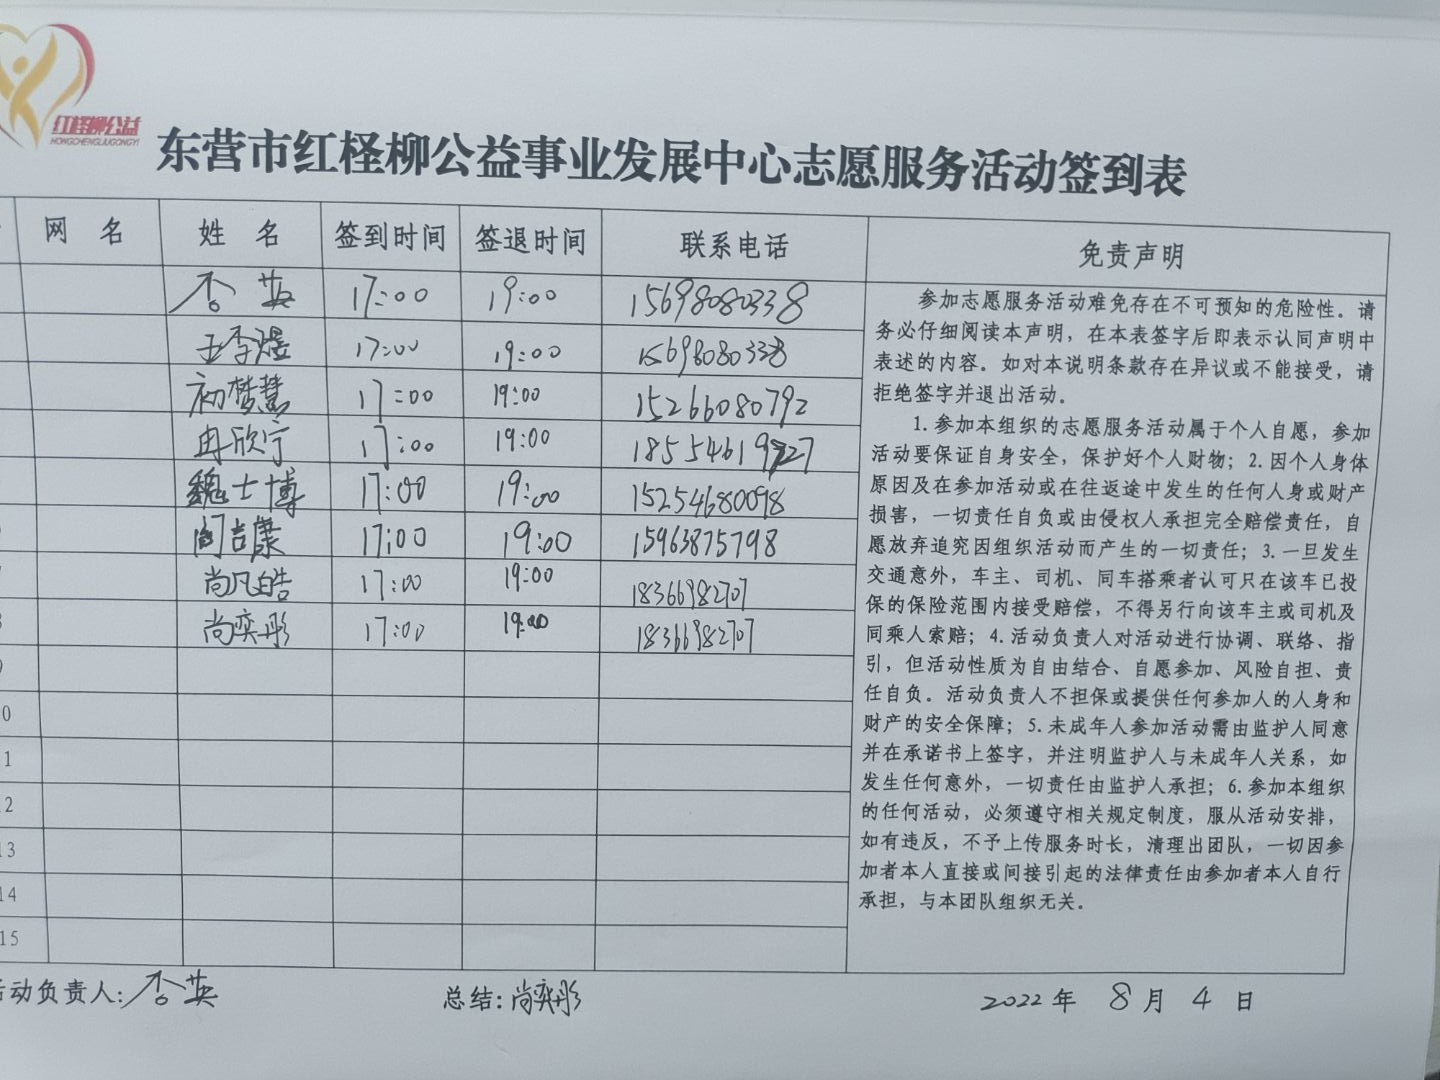 红柽柳公益
HONGCHENGLIUGONGYI
东营市红柽柳公益事业发展中心志愿服务活动签到表
网 名 姓 名 签到时间 签退时间 联系电话 免责声明
英 17:00 19:00 15698080338
王李煜 17:00 19:00 15698080338
初梦慧 17:00 19:00 15266080792
冉欣宁 17:00 19:00 18554619727
魏士博 17:00 19:00 15254680098
闫吉康 17:00 19:00 15963875798
尚凡皓 17:00 19:00 18366982707
尚奕彤 17:00 19:00 18366982707
9
10
11
12
13
14
15
参加志愿服务活动难免存在不可预知的危险性。请
务必仔细阅读本声明，在本表签字后即表示认同声明中
表述的内容。如对本说明条款存在异议或不能接受，请
拒绝签字并退出活动。
1.参加本组织的志愿服务活动属于个人自愿，参加
活动要保证自身安全，保护好个人财物；2.因个人身体
原因及在参加活动或在往返途中发生的任何人身或财产
损害，一切责任自负或由侵权人承担完全赔偿责任，自
愿放弃追究因组织活动而产生的一切责任；3.一旦发生
交通意外，车主、司机、同车搭乘者认可只在该车已投
保的保险范围内接受赔偿，不得另行向该车主或司机及
同乘人索赔；4.活动负责人对活动进行协调、联络、指
引，但活动性质为自由结合、自愿参加、风险自担、责
任自负。活动负责人不担保或提供任何参加人的人身和
财产的安全保障；5.未成年人参加活动需由监护人同意
并在承诺书上签字，并注明监护人与未成年人关系，如
发生任何意外，一切责任由监护人承担；6.参加本组织
的任何活动，必须遵守相关规定制度，服从活动安排，
如有违反，不予上传服务时长，清理出团队，一切因参
加者本人直接或间接引起的法律责任由参加者本人自行
承担，与本团队组织无关。
活动负责人: 英 总结: 尚奕彤 2022 年 8 月 4 日